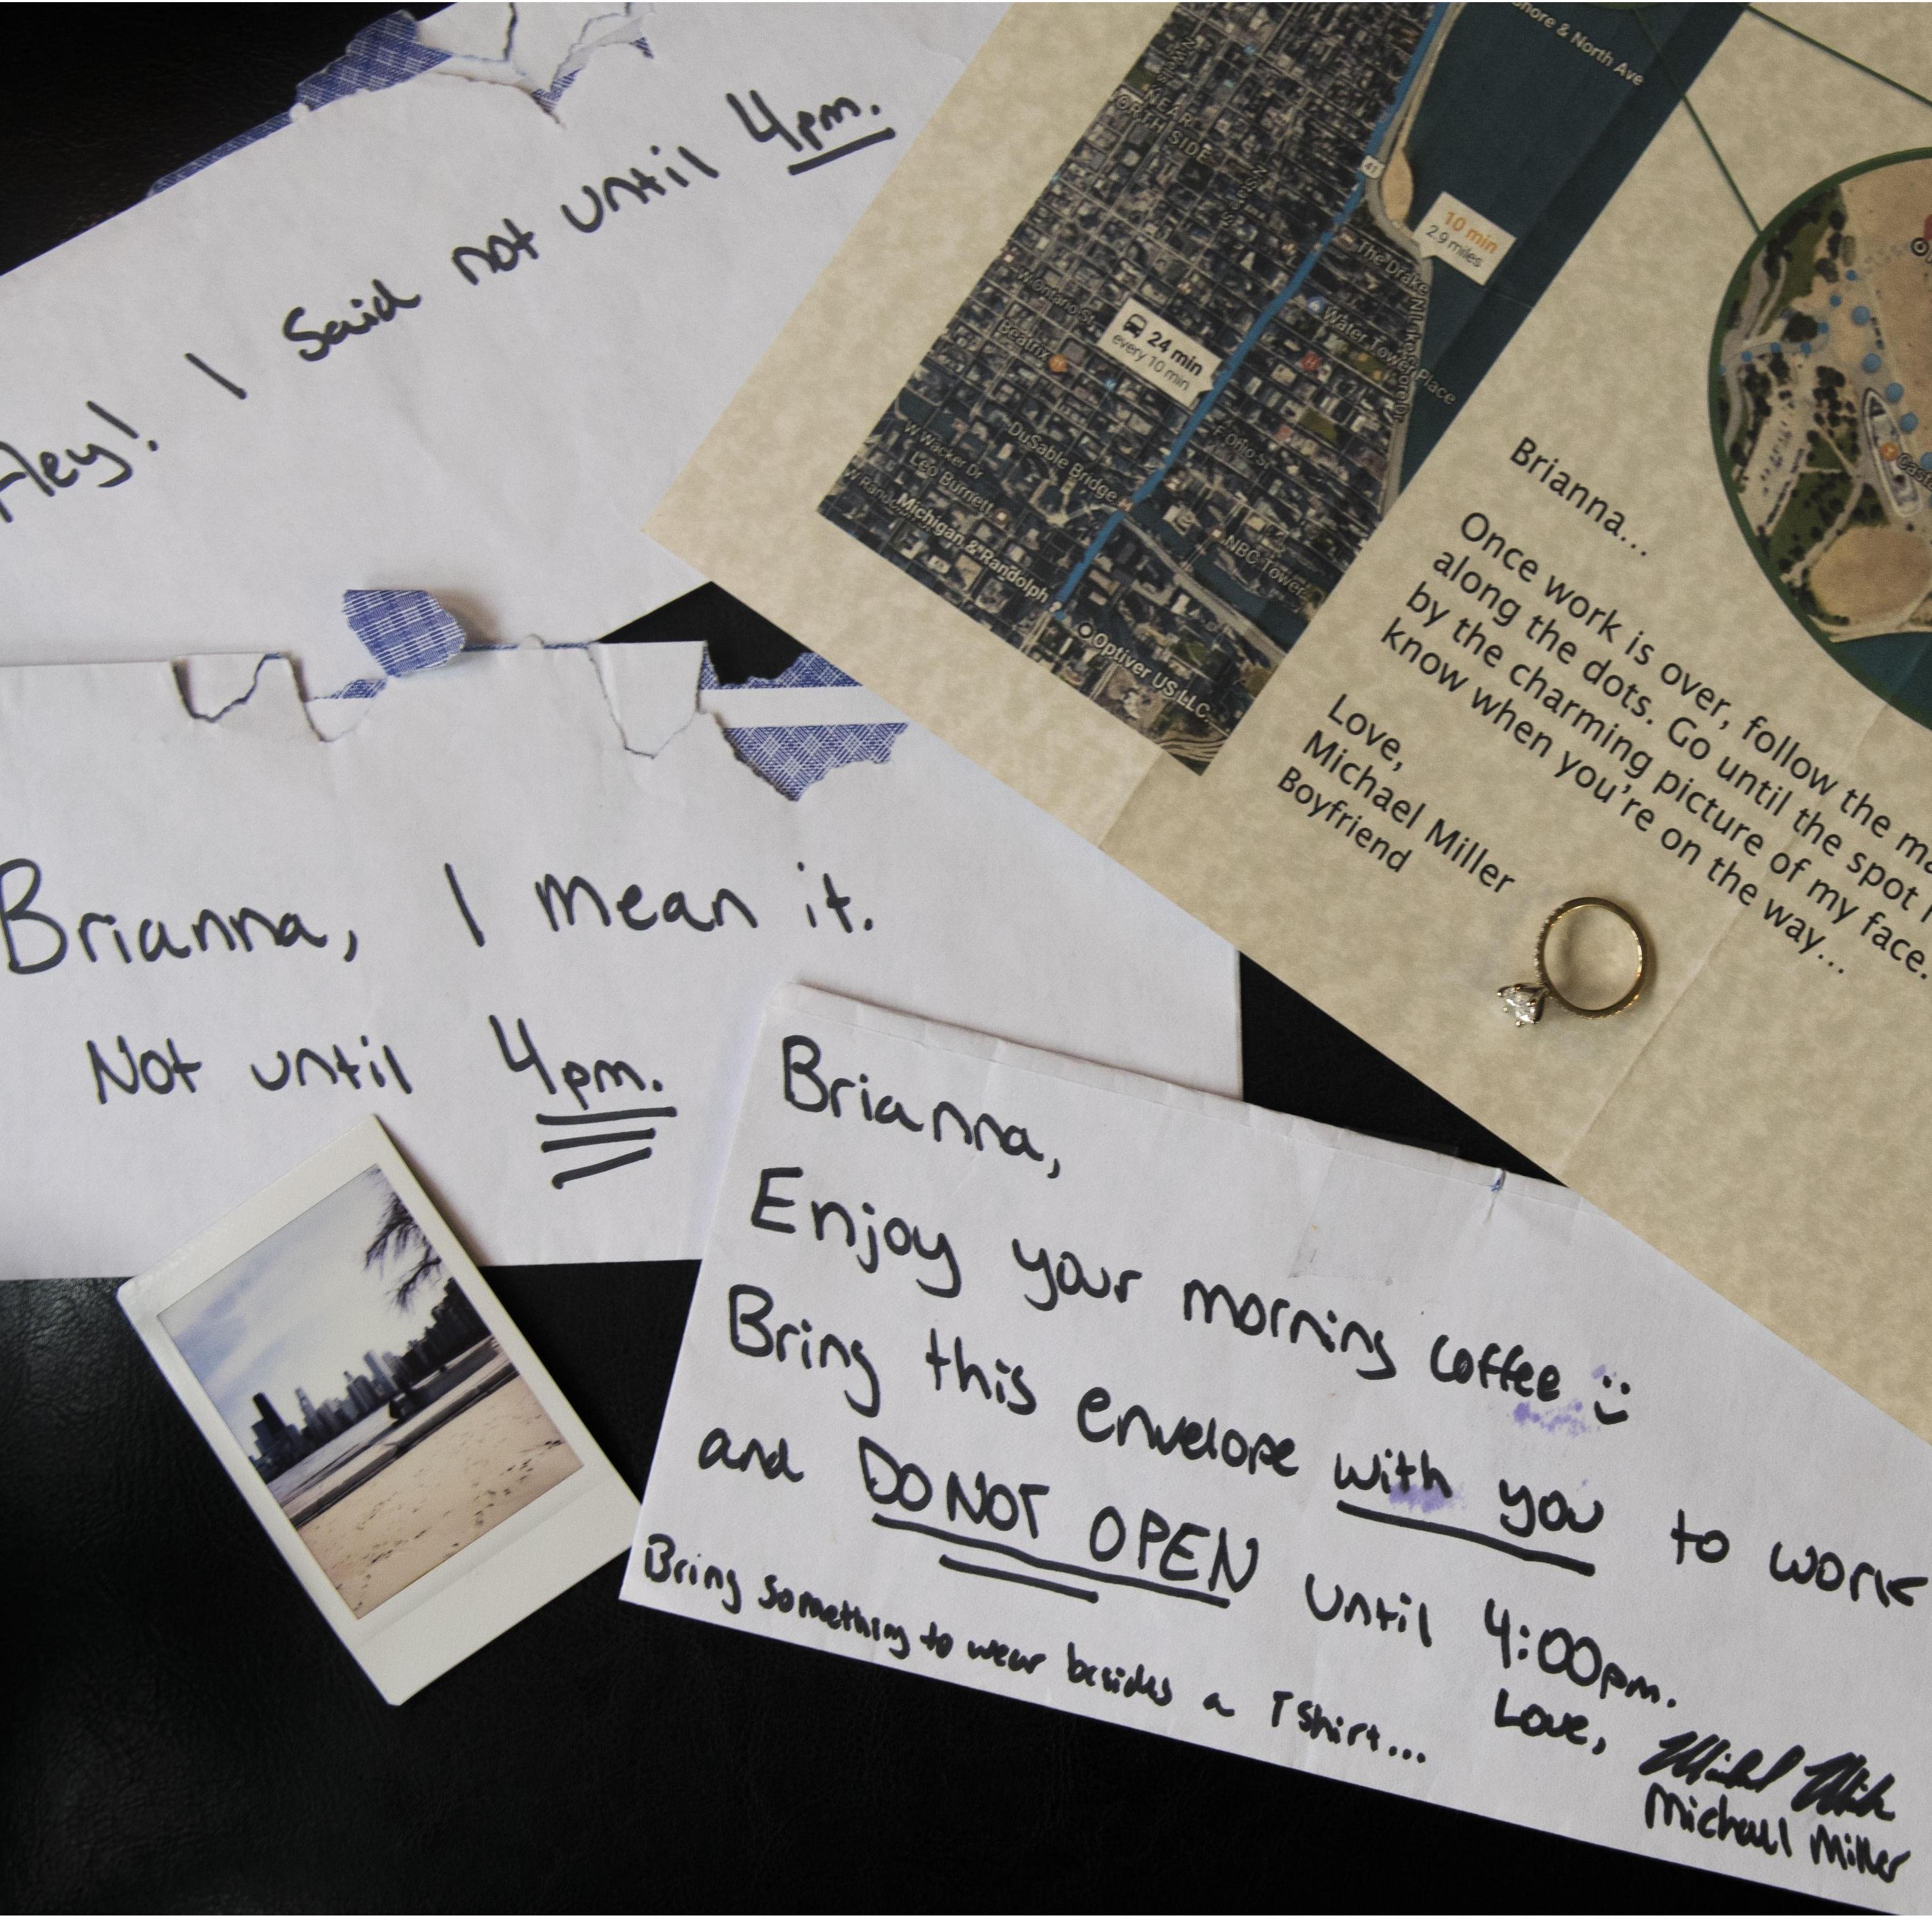 Hey! I said not until 4pm.
Brianna, I mean it.
Not until 4pm.
Brianna,
Enjoy your morning coffee :)
Bring this envelope with you to work
and DO NOT OPEN until 4:00pm.
Bring something to wear besides a T shirt...
Love,
Michael Miller
Brianna...
Once work is over, follow the
along the dots. Go until the spot
by the charming picture of my face.
know when you're on the way...
Love,
Michael Miller
Boyfriend
& North Ave
NEAR
NORTH SIDE
41
10 min
2.9 miles
The Drake
24 min
every 10 min
Water Tower Place
W Ontario St
Beatrix
E Ohio St
DuSable Bridge
W Wacker Dr
Leo Burnett
Michigan & Randolph
NBC Tower
Optiver US LLC.